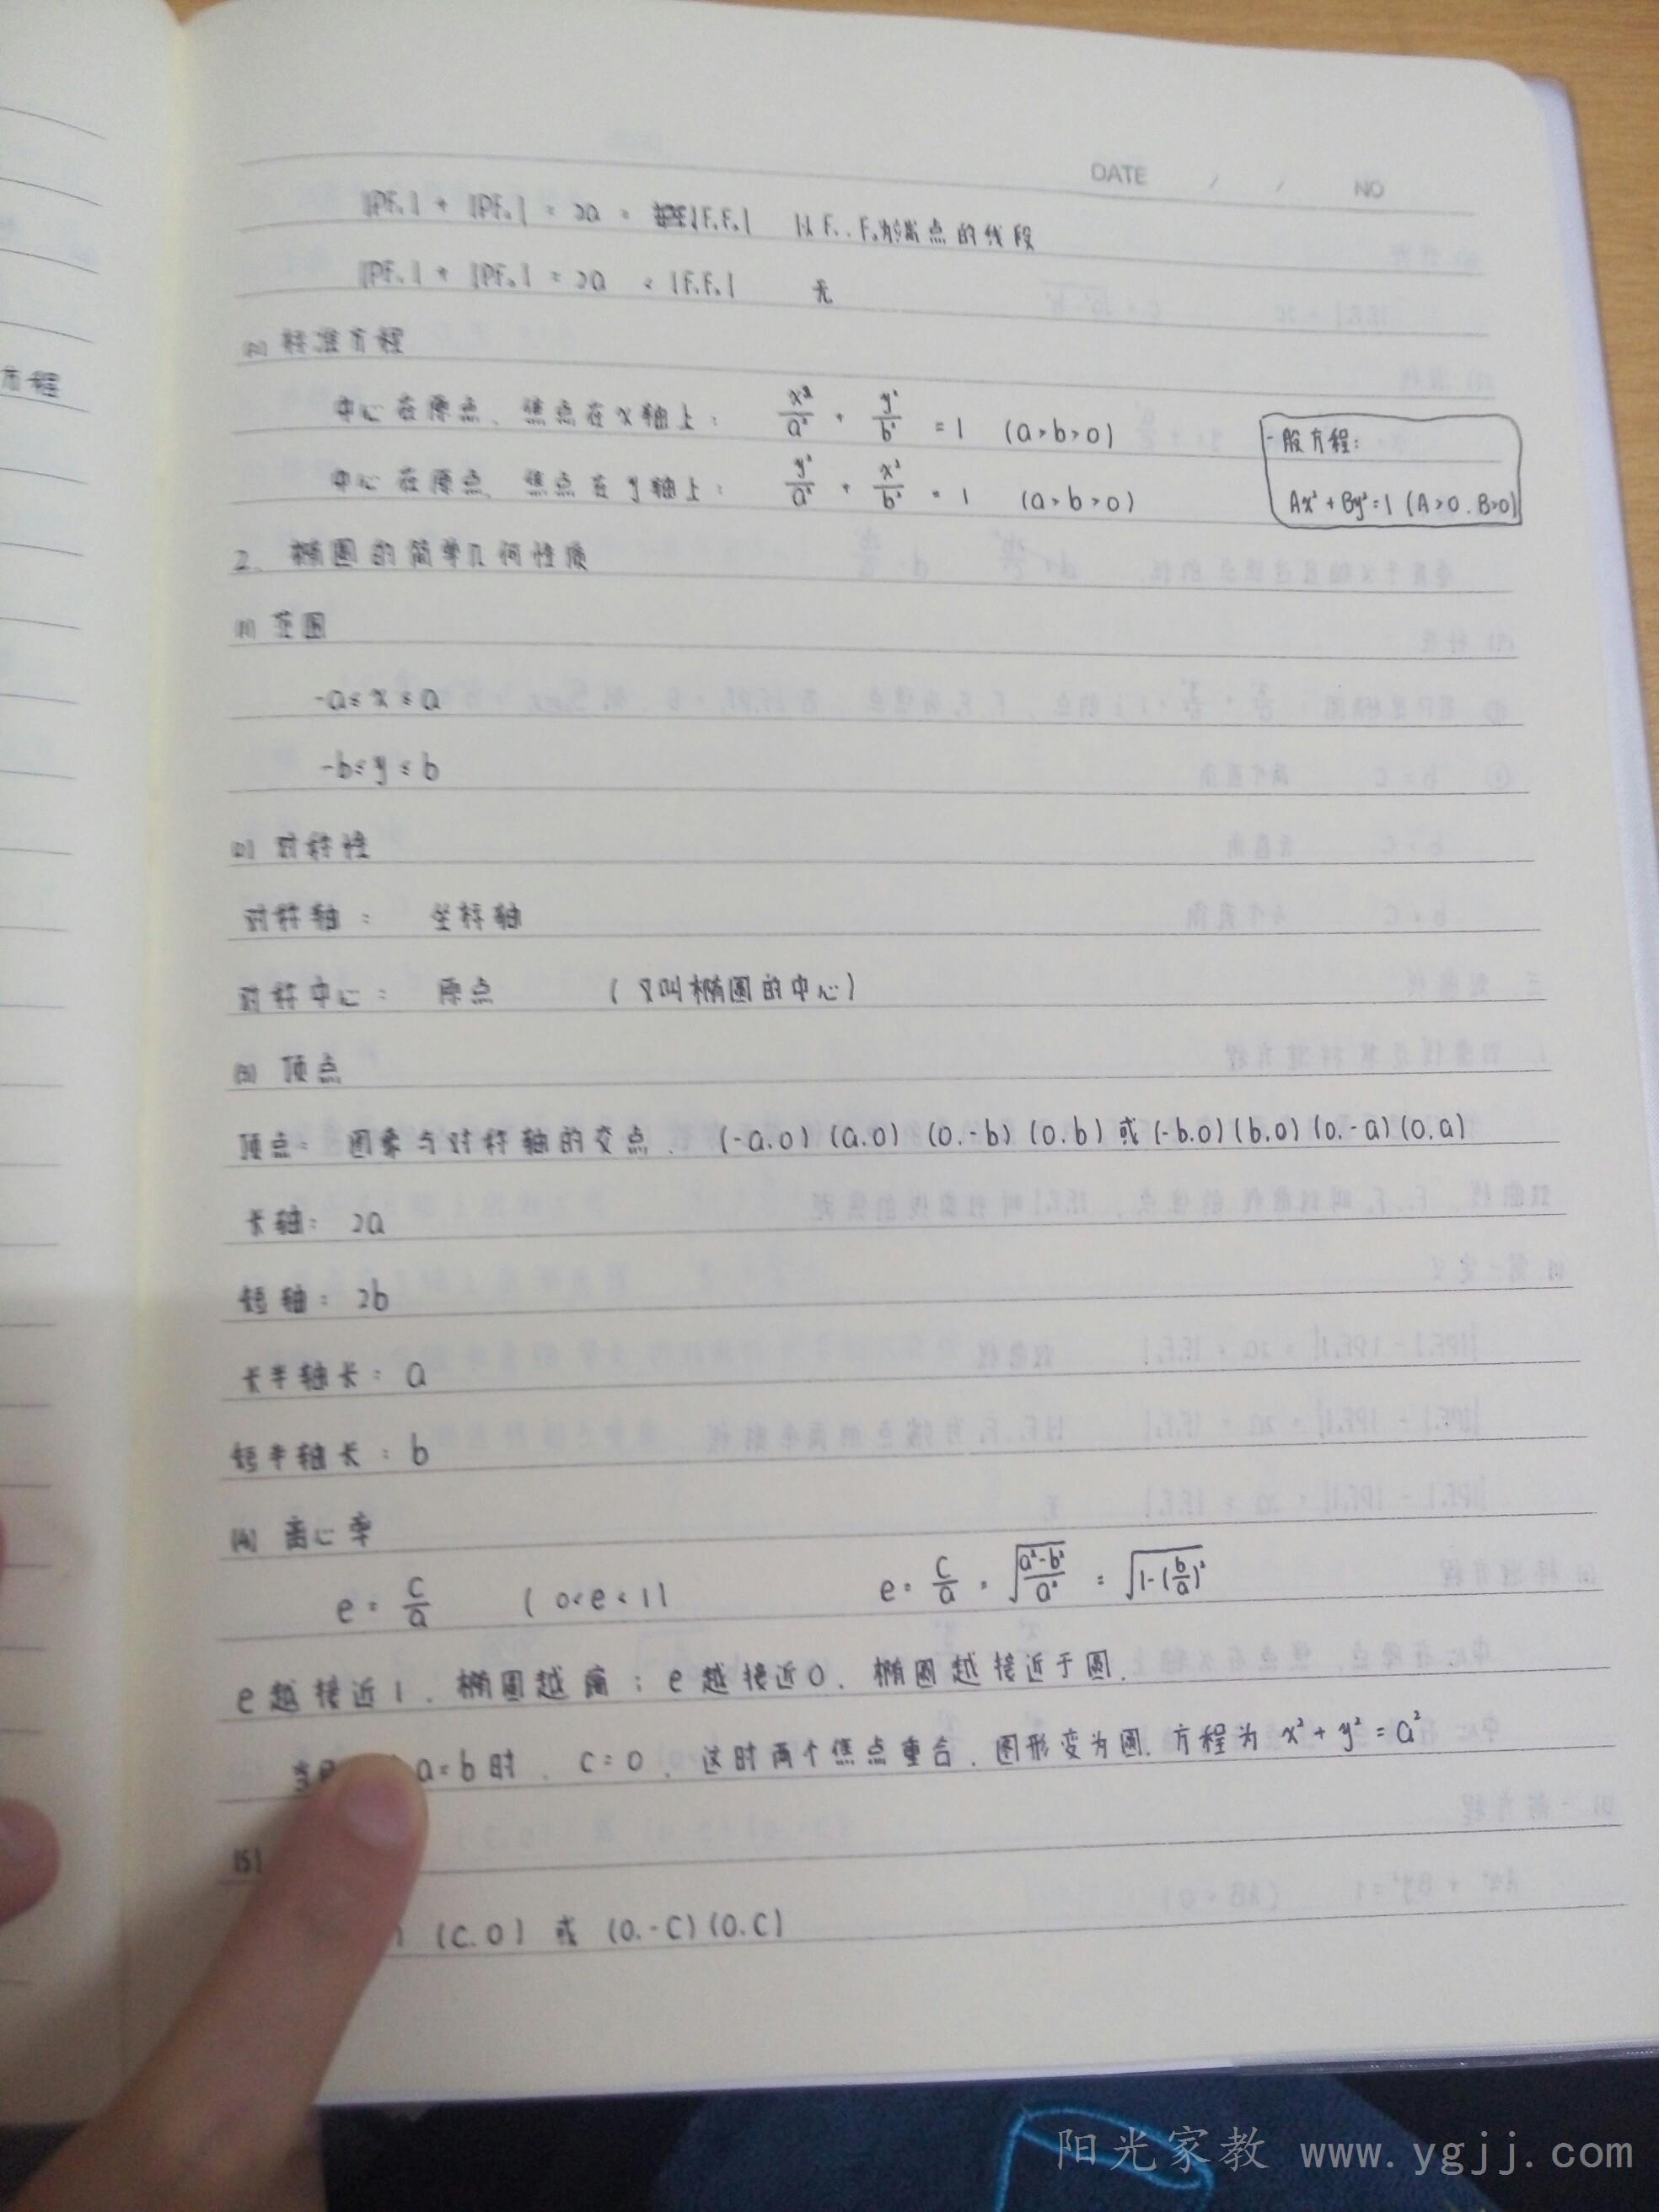 DATE / / NO
|PF₁| + |PF₂| = 2a = |F₁F₂| 以F₁、F₂为端点的线段
|PF₁| + |PF₂| = 2a < |F₁F₂| 无
(2) 标准方程
方程
中心在原点、焦点在x轴上: x²/a² + y²/b² = 1 (a>b>0)
一般方程:
中心在原点、焦点在y轴上: y²/a² + x²/b² = 1 (a>b>0)
Ax²+By²=1 (A>0.B>0)
2. 椭圆的简单几何性质
(1) 范围
-a≤x≤a
-b≤y≤b
(2) 对称性
对称轴: 坐标轴
对称中心: 原点 (又叫椭圆的中心)
(3) 顶点
顶点: 图象与对称轴的交点. (-a.0) (a.0) (0.-b) (0.b) 或 (-b.0) (b.0) (0.-a) (0.a)
长轴: 2a
短轴: 2b
长半轴长: a
短半轴长: b
(4) 离心率
e = c/a (0<e<1) e = c/a = √((a²-b²)/a²) = √(1-(b/a)²)
e越接近1. 椭圆越扁; e越接近0. 椭圆越接近于圆.
a=b时. c=0. 这时两个焦点重合. 图形变为圆. 方程为 x²+y²=a²
(5)
) (c.0) 或 (0.-c) (0.c)
阳光家教 www.ygjj.com